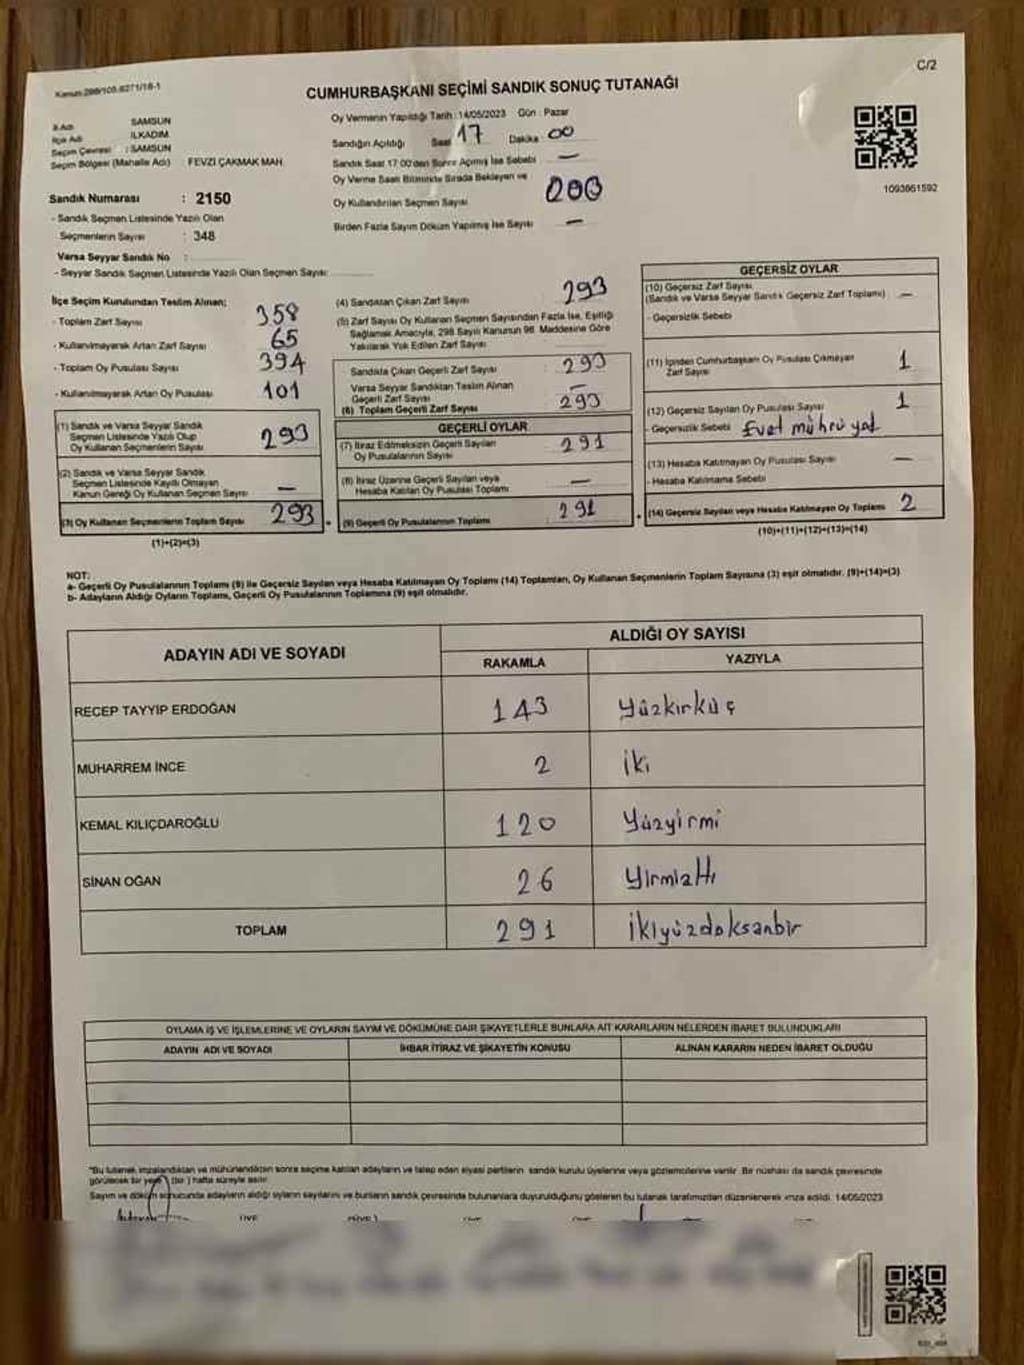 C/2
Kanun:298/105,6271/18-1
CUMHURBAŞKANI SEÇİMİ SANDIK SONUÇ TUTANAĞI
İl Adı SAMSUN
İlçe Adı İLKADIM
Seçim Çevresi : SAMSUN
Seçim Bölgesi (Mahalle Adı) : FEVZİ ÇAKMAK MAH.
Sandık Numarası : 2150
- Sandık Seçmen Listesinde Yazılı Olan
Seçmenlerin Sayısı : 348
Varsa Seyyar Sandık No :
- Seyyar Sandık Seçmen Listesinde Yazılı Olan Seçmen Sayısı:
Oy Vermenin Yapıldığı Tarih :14/05/2023 Gün : Pazar
Sandığın Açıldığı Saat 17 Dakika : 00
Sandık Saat 17:00'den Sonra Açılmış İse Sebebi —
Oy Verme Saati Bitiminde Sırada Bekleyen ve
Oy Kullandırılan Seçmen Sayısı
Birden Fazla Sayım Döküm Yapılmış İse Sayısı —
1093861592
İlçe Seçim Kurulundan Teslim Alınan;
- Toplam Zarf Sayısı 358
- Kullanılmayarak Artan Zarf Sayısı 65
- Toplam Oy Pusulası Sayısı 394
- Kullanılmayarak Artan Oy Pusulası 101
(1) Sandık ve Varsa Seyyar Sandık
Seçmen Listesinde Yazılı Olup
Oy Kullanan Seçmenlerin Sayısı 293
(2) Sandık ve Varsa Seyyar Sandık
Seçmen Listesinde Kayıtlı Olmayan
Kanun Gereği Oy Kullanan Seçmen Sayısı —
(3) Oy Kullanan Seçmenlerin Toplam Sayısı 293
(1)+(2)=(3)
(4) Sandıktan Çıkan Zarf Sayısı 293
(5) Zarf Sayısı Oy Kullanan Seçmen Sayısından Fazla İse, Eşitliği
Sağlamak Amacıyla, 298 Sayılı Kanunun 98. Maddesine Göre
Yakılarak Yok Edilen Zarf Sayısı
Sandıkta Çıkan Geçerli Zarf Sayısı : 293
Varsa Seyyar Sandıktan Teslim Alınan
Geçerli Zarf Sayısı : —
(6) Toplam Geçerli Zarf Sayısı 293
GEÇERLİ OYLAR
(7) İtiraz Edilmeksizin Geçerli Sayılan
Oy Pusulalarının Sayısı 291
(8) İtiraz Üzerine Geçerli Sayılan veya
Hesaba Katılan Oy Pusulası Toplamı —
(9) Geçerli Oy Pusulalarının Toplamı 291
GEÇERSİZ OYLAR
(10) Geçersiz Zarf Sayısı
(Sandık ve Varsa Seyyar Sandık Geçersiz Zarf Toplamı) —
- Geçersizlik Sebebi
(11) İçinden Cumhurbaşkanı Oy Pusulası Çıkmayan
Zarf Sayısı 1
(12) Geçersiz Sayılan Oy Pusulası Sayısı 1
- Geçersizlik Sebebi Evet mührü yok
(13) Hesaba Katılmayan Oy Pusulası Sayısı —
- Hesaba Katılmama Sebebi
(14) Geçersiz Sayılan veya Hesaba Katılmayan Oy Toplamı 2
(10)+(11)+(12)+(13)=(14)
NOT:
a- Geçerli Oy Pusulalarının Toplamı (9) ile Geçersiz Sayılan veya Hesaba Katılmayan Oy Toplamı (14) Toplamları, Oy Kullanan Seçmenlerin Toplam Sayısına (3) eşit olmalıdır. (9)+(14)=(3)
b- Adayların Aldığı Oyların Toplamı, Geçerli Oy Pusulalarının Toplamına (9) eşit olmalıdır.
ADAYIN ADI VE SOYADI ALDIĞI OY SAYISI
RAKAMLA YAZIYLA
RECEP TAYYIP ERDOĞAN 143 Yüzkırküç
MUHARREM İNCE 2 iki
KEMAL KILIÇDAROĞLU 120 Yüzyirmi
SİNAN OĞAN 26 Yirmialtı
TOPLAM 291 ikiyüzdoksanbir
OYLAMA İŞ VE İŞLEMLERİNE VE OYLARIN SAYIM VE DÖKÜMÜNE DAİR ŞİKAYETLERLE BUNLARA AİT KARARLARIN NELERDEN İBARET BULUNDUKLARI
ADAYIN ADI VE SOYADI İHBAR İTİRAZ VE ŞİKAYETİN KONUSU ALINAN KARARIN NEDEN İBARET OLDUĞU
*Bu tutanak imzalandıktan ve mühürlendikten sonra seçime katılan adayların ve talep eden siyasi partilerin sandık kurulu üyelerine veya gözlemcilerine verilir. Bir nüshası da sandık çevresinde
görülecek bir yere (bir) hafta süreyle asılır.
Sayım ve döküm sonucunda adayların aldığı oyların sayılarını ve bunların sandık çevresinde bulunanlara duyurulduğunu gösteren bu tutanak tarafımızdan düzenlenerek imza edildi. 14/05/2023